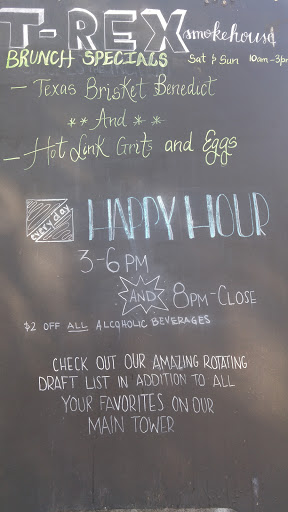 T-REX smokehouse
BRUNCH SPECIALS Sat & Sun 10am-3pm
- Texas Brisket Benedict
** And **
- Hot Link Grits and Eggs
every day HAPPY HOUR
3-6 PM
AND 8PM-CLOSE
$2 OFF ALL ALCOHOLIC BEVERAGES
CHECK OUT OUR AMAZING ROTATING
DRAFT LIST IN ADDITION TO ALL
YOUR FAVORITES ON OUR
MAIN TOWER